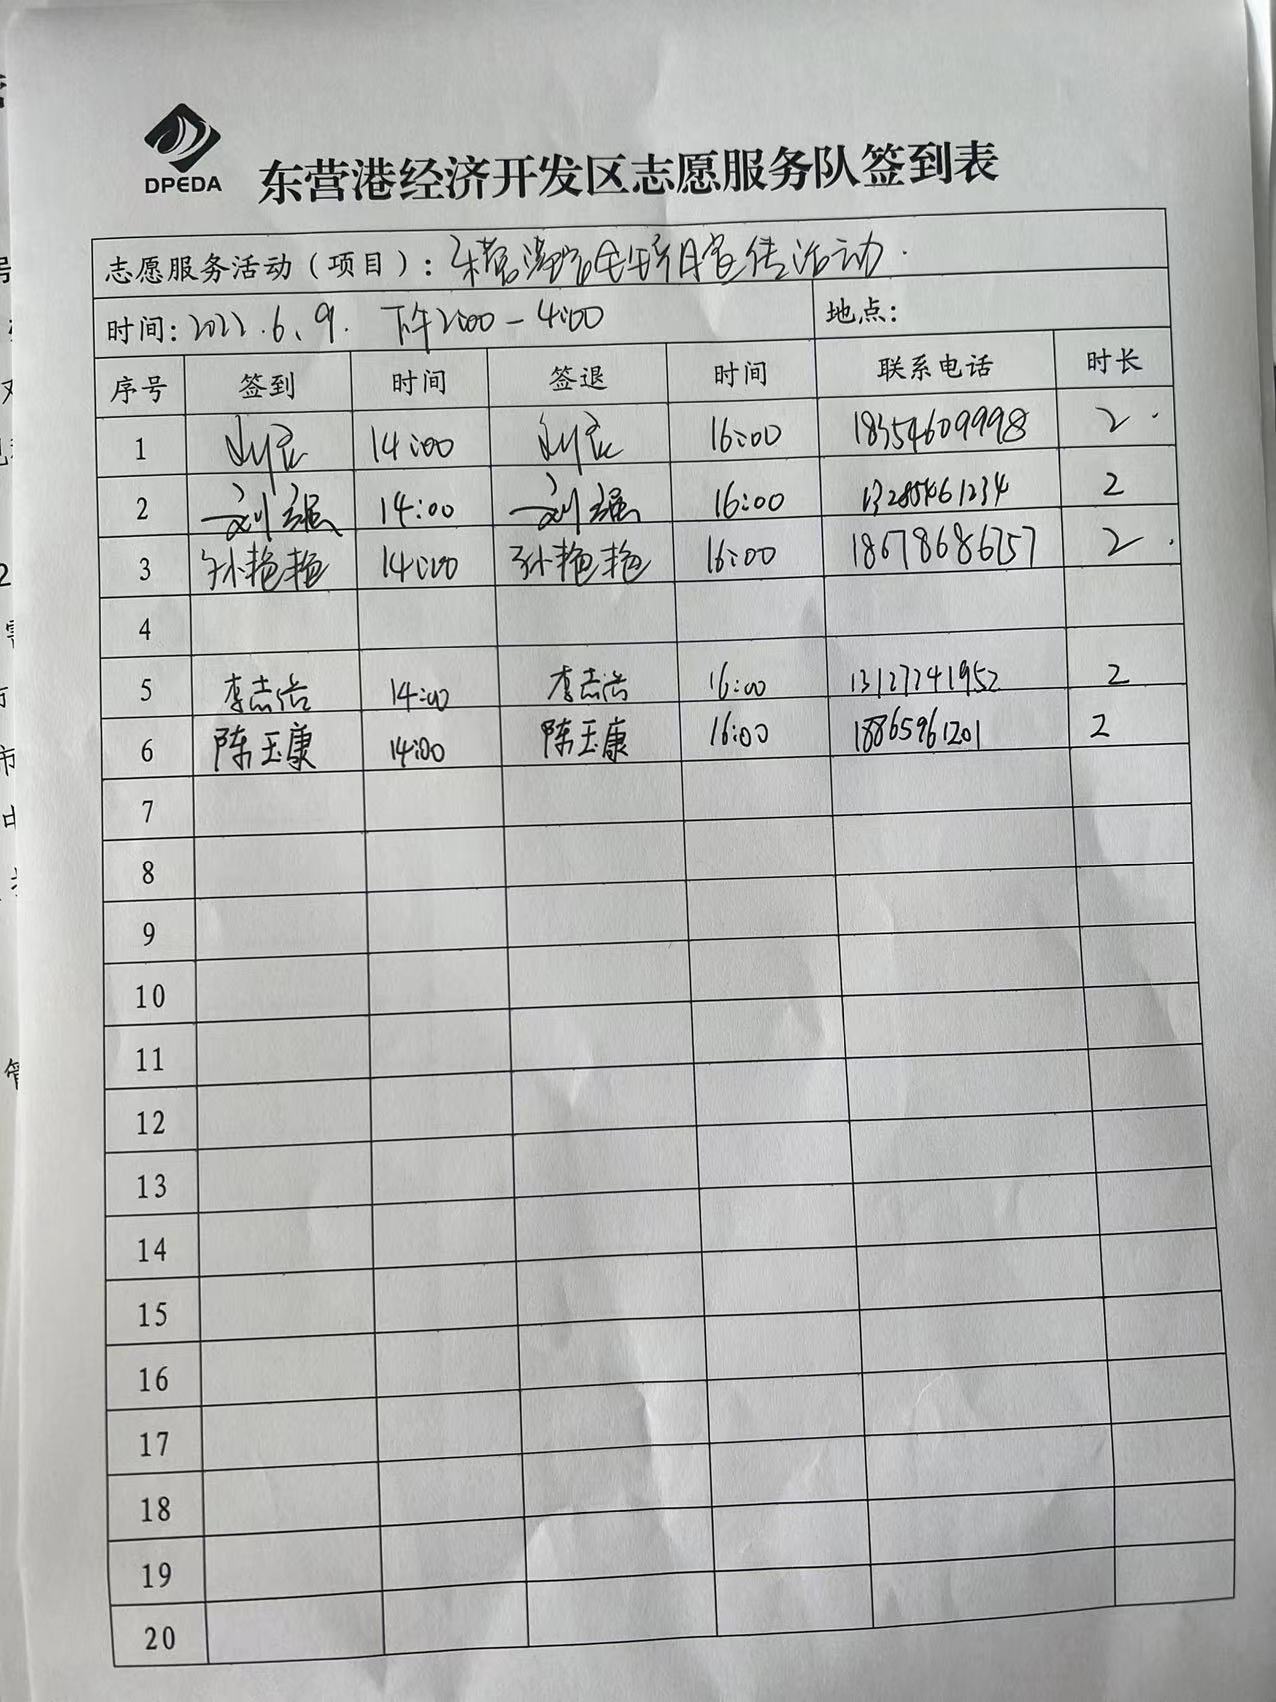 DPEDA
东营港经济开发区志愿服务队签到表
志愿服务活动（项目）：东营港安全生产月宣传活动.
时间：2022.6.9. 下午2:00-4:00 地点：
序号 签到 时间 签退 时间 联系电话 时长
1 14:00 16:00 18354609998 2
2 刘强 14:00 16:00 刘强 13285461234 2
3 孙艳艳 14:00 孙艳艳 16:00 18678686757 2
4
5 李志浩 14:00 李志浩 16:00 13127241952 2
6 陈玉康 14:00 陈玉康 16:00 18865961201 2
7
8
9
10
11
12
13
14
15
16
17
18
19
20